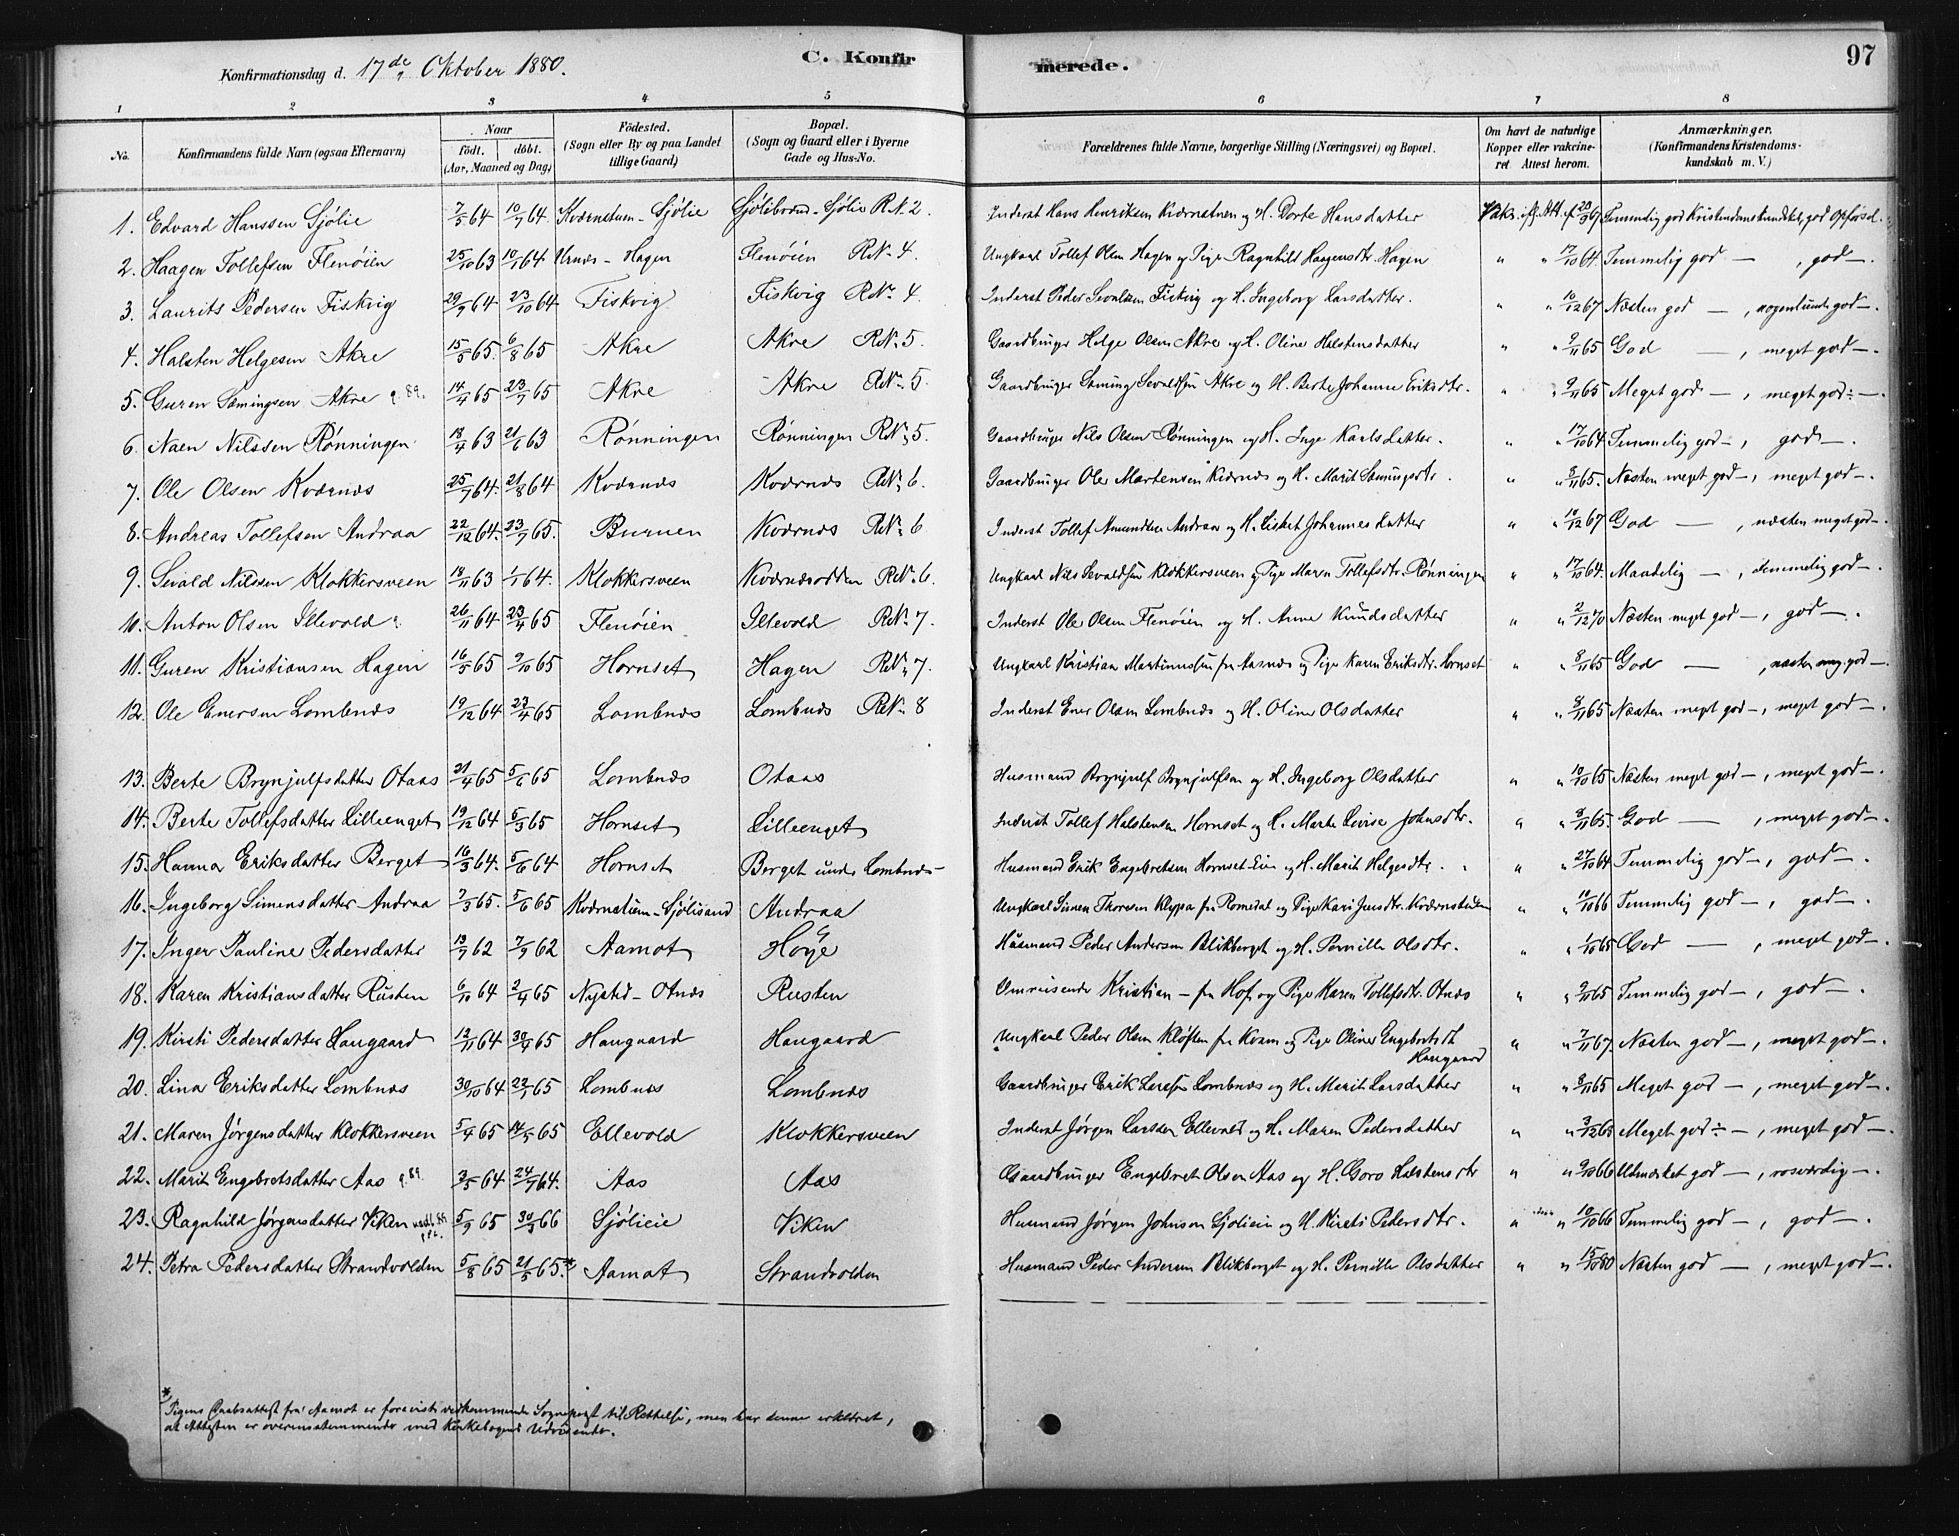 Konfirmationsdag d. 17de Oktober 1880.
C. Konfir
merede.
97
1 2 3 4 5 6 7 8
No.
Konfirmandens fulde Navn (ogsaa Efternavn)
Naar
födt. döbt.
(Aar, Maaned og Dag)
Födested.
(Sogn eller By og paa Landet
tillige Gaard)
Bopæl.
(Sogn og Gaard eller i Byerne
Gade og Hus-No.
Forældrenes fulde Navne, borgerlige Stilling (Næringsvei) og Bopæl.
Om havt de naturlige
Kopper eller vakcine-
ret Attest herom.
Anmærkninger.
(Konfirmandens Kristendoms-
kundskab m. V.)
1. Edvard Hanssen Sjölie 7/5 64 10/7 64. Kværnstuen - Sjölie Sjölibrænd - Sjölie R.N. 2. Inderst Hans Henriksen Kværnstuen og H. Dorte Hansdatter Temmelig god Kristendomskundskab, god Opförsel.
2. Haagen Tollefsen Flenöien 25/10 63 10/1 64 Urnæs - Hagen Flenöien R.N. 4. Ungkarl Tollef Olsen Hagen og Pige Ragnhild Haagensdtr. Hagen " " 17/10 64. Temmelig god —, god —.
3. Laurits Pedersen Fiskvig 29/9 64 23/10 64 Fiskvig Fiskvig R.N. 4. Inderst Peder Sevaldsen Fiskvig og H. Ingeborg Larsdatter. " " 10/12 67 Næsten god —, nogenlunde god —.
4. Halsten Helgesen Akre 15/5 65. 6/8 65 Akre Akre R.N. 5. Gaardbruger Helge Olsen Akre og H. Oline Halstensdatter " " 9/11 65 God —, meget god —.
5. Guren Sæmingsen Akre 14/4 65 23/7 65 Akre Akre R.N. 5. Gaardbruger Sæming Sevaldsen Akre og H. Berte Johanne Eriksdtr. " " 9/11 65 Meget god —, meget god ÷ —.
6. Naen Nilssen Rönningen 18/4 63 21/6 63 Rönningen Rönningen R.N. 5. Gaardbruger Nils Olsen Rönningen og H. Inge Karlsdatter. " " 17/10 64. Temmelig god —, god —.
7. Ole Olsen Kværnæs 25/7 64. 21/8 64 Kværnæs Kværnæs R.N. 6. Gaardbruger Ole Martensen Kværnæs og H. Marit Sæmingsdtr. " " 8/11 65. Næsten meget god —, meget god —.
8. Andreas Tollefsen Andraa 22/12 64. 23/7 65. Buruen Kværnæs R.N. 6 Inderst Tollef Amundsen Andraa og H. Lisbet Johannesdatter " " 10/12 67 God —, næsten meget god —.
9. Sevald Nilssen Klokkersveen 18/11 63 1/1 64. Klokkersveen Kværnæsodden R.N. 6. Ungkarl Nils Sevaldsen Klokkersveen og Pige Maren Tollefsdtr. Rönningen " " 17/10 64. Maadelig —, temmelig god —.
10. Anton Olsen Illevold 26/11 64 23/4 65 Flenöien Illevold R.N. 7. Inderst Ole Olsen Flenöien og H. Anne Knudsdatter " " 2/12 70 Næsten meget god —, god —.
11. Guren Kristiansen Hagen 16/5 65 9/10 65 Hornset Hagen R.N. 7. Ungkarl Kristian Martinussen fra Aasnæs og Pige Karen Eriksdtr. Hornset " " 8/11 65 God —, næsten meg. god —.
12. Ole Enersen Lombnæs 19/12 64 23/4 65 Lombnæs Lombnæs R.N. 8 Inderst Ener Olsen Lombnæs og H. Oline Olsdatter " " 8/11 65 Næsten meget god —, meget god —.
13. Berte Brynjulfsdatter Otaas 21/4 65 5/6 65 Lombnæs Otaas Husmand Brynjulf Brynjulfsen og H. Ingeborg Olsdatter " " 10/10 65 Næsten meget god —, meget god —.
14. Berte Tollefsdatter Lilleenget 19/12 64 5/3 65 Hornset Lilleenget Inderst Tollef Halstensen Hornset og H. Marte Lovise Johnsdtr. " " 9/11 65. God —, meget god —.
15. Hanna Eriksdatter Berget 16/3 64. 5/6 64 Hornset Berget under Lombnæs — Husmand Erik Engebretsen Hornset-Eie og H. Marit Helgesdtr. " " 27/10 64 Temmelig god —, god —.
16. Ingeborg Simensdatter Andraa 7/3 65. 5/6 65 Kværnstuen - Sjölisand Andraa Ungkarl Simen Thoresen Klyppa fra Romedal og Pige Kari Jensdtr. Kværnstuen " " 11/10 66 Temmelig god —, god —.
17. Inger Pauline Pedersdatter 13/7 62 7/9 62 Aamot Höye Husmand Peder Andersen Blikberget og H. Pernille Olsdtr. " " 1/10 65 God —, meget god —.
18. Karen Kristiansdatter Rusten 6/10 64 2/4 65 Nysted - Otnæs Rusten Omreisende Kristian — fra Hof og Pige Karen Tollefsdtr. Otnæs " " 9/11 65 Temmelig god —, god —.
19. Kirsti Pedersdatter Haugaard 12/11 64 30/4 65 Haugaard Haugaard Ungkarl Peder Olsen Klöften fra Kvam og Pige Oline Engebretsdt. " " 7/11 67. Næsten god —, meget god —.
Haugaard
20. Lina Eriksdatter Lombnæs 30/10 64 22/1 65 Lombnæs Lombnæs Gaardbruger Erik Larsen Lombnæs og H. Marit Larsdatter " " 8/11 65 Meget god —, meget god —.
21. Maren Jörgensdatter Klokkersveen 5/4 65 14/5 65 Ellevold Klokkersveen Inderst Jörgen Larsen Ellevold og H. Maren Pedersdatter " " 3/12 65 Meget god ÷ —, meget god —.
22. Marit Engebretsdatter Aas 3/5 64 24/7 64. Aas Aas Gaardbruger Engebret Olsen Aas og H. Goro Halstensdtr " " 9/10 66 Udmærket god —, rosværdig —.
23. Ragnhild Jörgensdatter Viken 5/9 65 30/3 66 Sjölieie Viken Husmand Jörgen Johnsen Sjölieie og H. Kirsti Pedersdtr. " " 10/10 66 Temmelig god —, god —.
24. Petra Pedersdatter Strandvolden 5/8 65 21/5 65.* Aamot Strandvolden Husmand Peder Andersen Blikberget og H. Pernille Olsdatter " " 15/10 80 Næsten god —, meget god —.
* Pigens Daabsattest fra Aamot er forevist vedkommende Sognepræst til Rettelse, men har denne erklæret,
at Attesten er overensstemmende med Kirkebogens Udvisende.